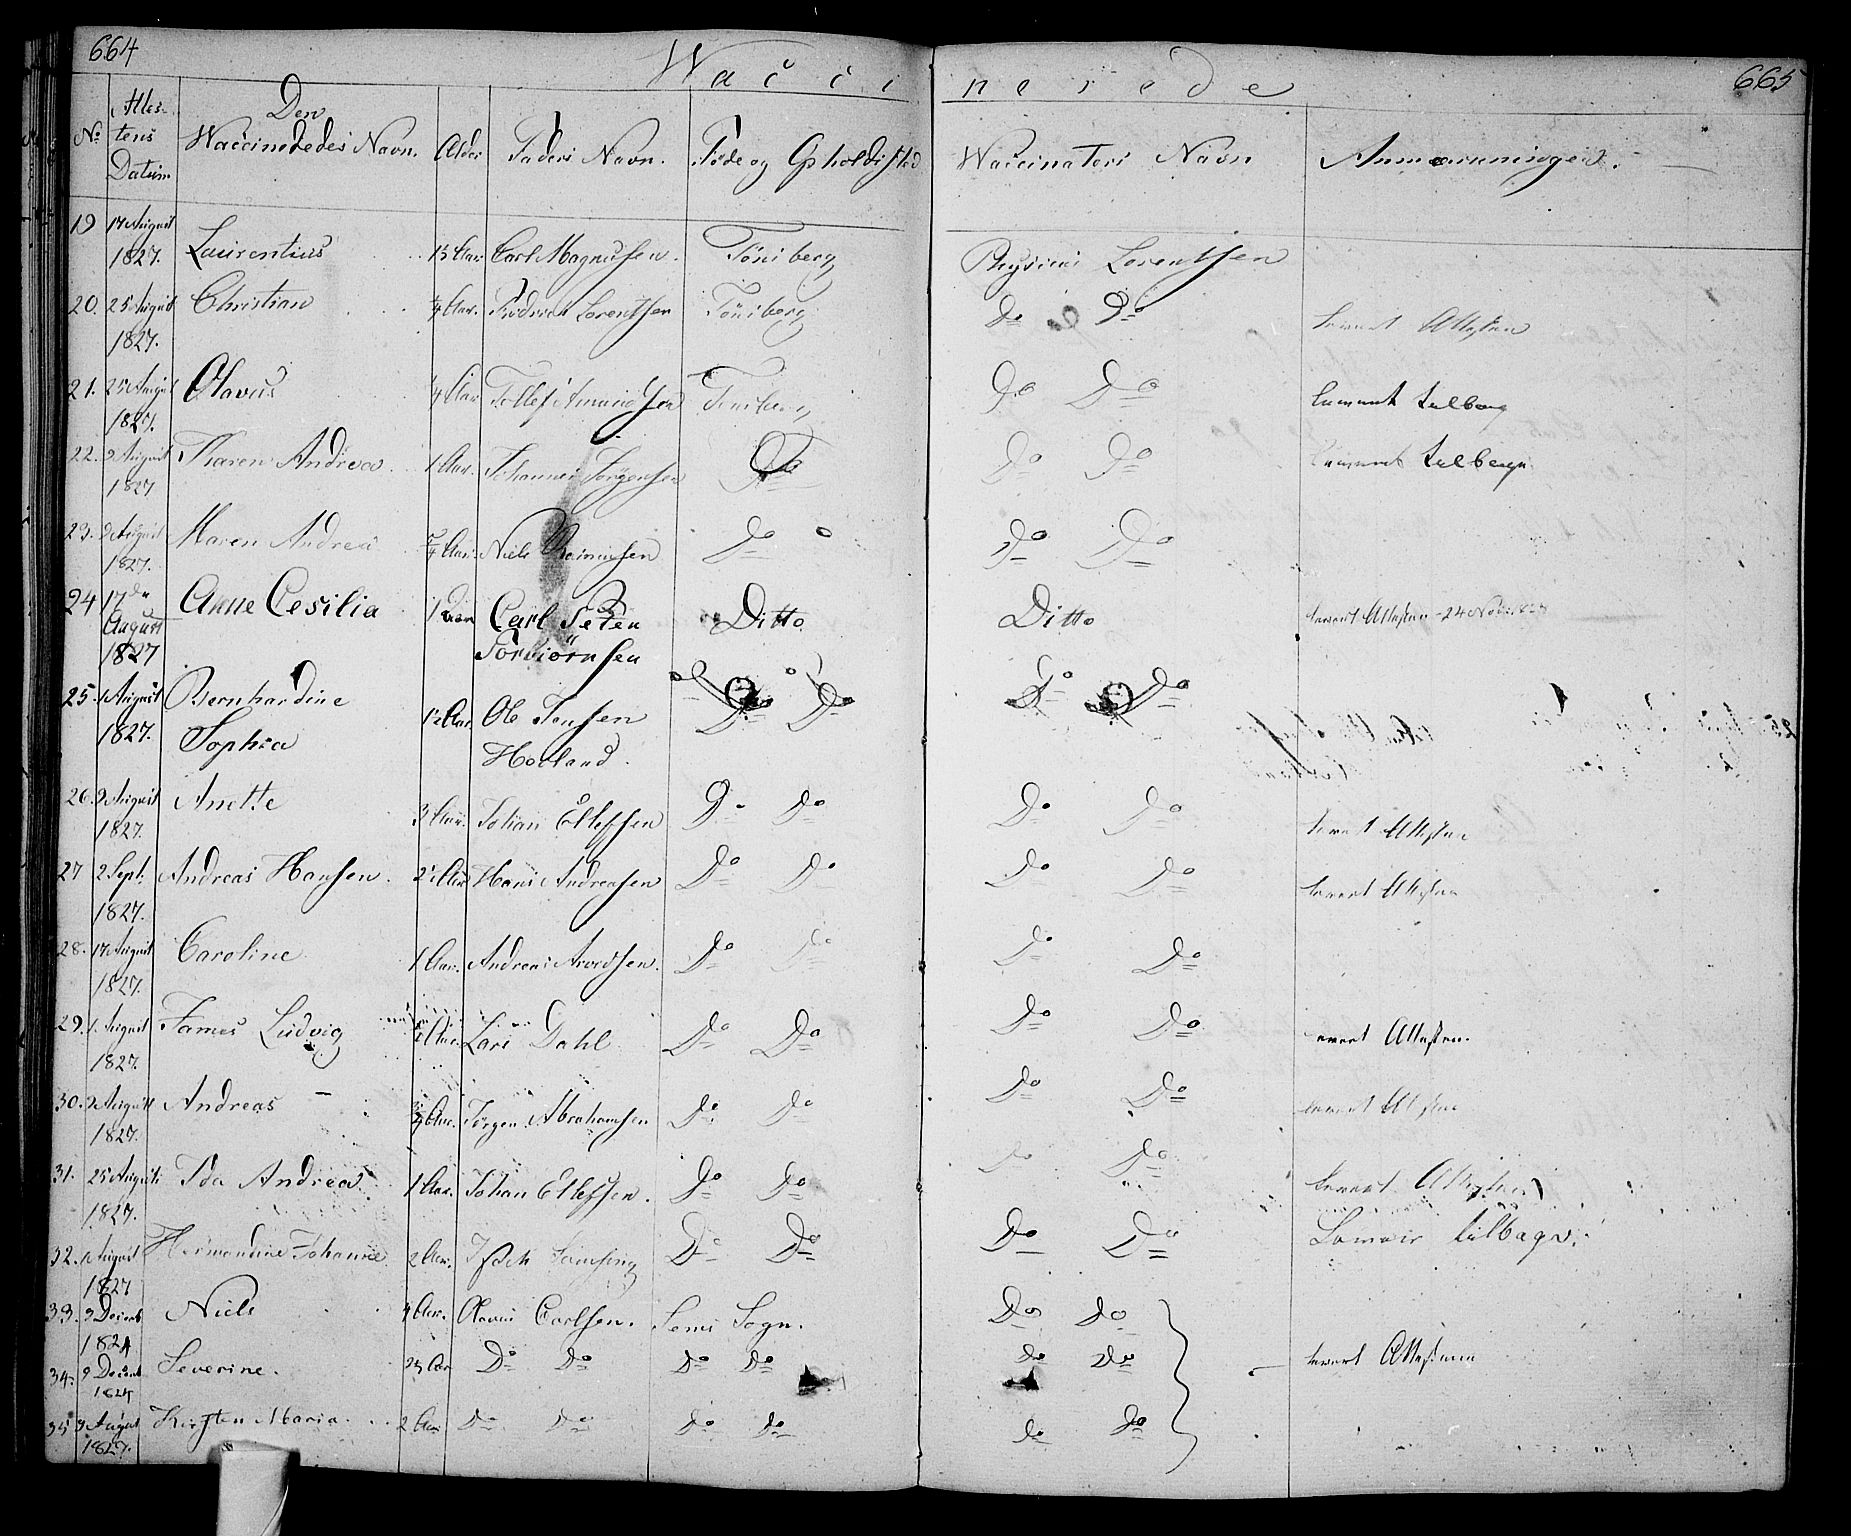 664 Wacci
nerede 665
No Attestens Datum Den Waccineredes Navn. Alder Faders Navn. Føde og Opholdssted Waccinatores Navn Anmærkninger.
19 17 August 1827. Laurentius Aar. Carl Magnusen. Tönsberg Physicus Lorentsen
20. 25 August 1827. Christian Aar. Fredrich Lorentsen Tönsberg Do Do levert Attesten
21. 25 August 1827. Olavus Aar Tollef Amundsen Tönsberg Do Do
22. 9 August 1827 Karen Andrea 1 Aar. Johannes Jörgensen Do Do Do
23. 9 August 1827. Maren Andrea Aar. Niels Do Do Do
24 17de August 1827 Anne Cesilia 1 Aar Carl Peter Ditto Ditto levert Attesten 24 Nov.
Torbiörnsen
25. 1 August 1827. Bernhardine Aar. Ole Jenssen Do Do Do Do
Sophia Hotland.
26. 9 August 1827. Anette 3 Aar. Johan Ellefsen Do Do Do Do levert Attesten
27 2 Sept. 1827. Andreas Hansen. Aar Hans Andreasen Do Do Do Do levert Attesten
28. 17 August 1827. Caroline 1 Aar. Andreas Arvedsen. Do Do Do Do
29. 1. August 1827. James Ludvig Aar. Lars Dahl Do Do Do Do levert Attesten.
30. 9 August 1827. Andreas Aar. Jörgen Abrahamsen Do Do Do Do levert Attesten
31. 25 August 1827. Ida Andrea 1 Aar. Johan Ellefsen. Do Do Do Do levert Attesten
32. 1 August 1827 Hermandine Johanne 2 Aar. Do Do Do Do
33. 9 Decemb 1824 Niels 4 Aar. Olavus Carlsen. Sems Sogn. Do Do
34. 9 Decemb 1824 Severine. Aar Do Do Do Do Do Do levert Attesterne
35 9 August 1827. Kirsten Maria. 2 Aar Do Do Do Do Do Do